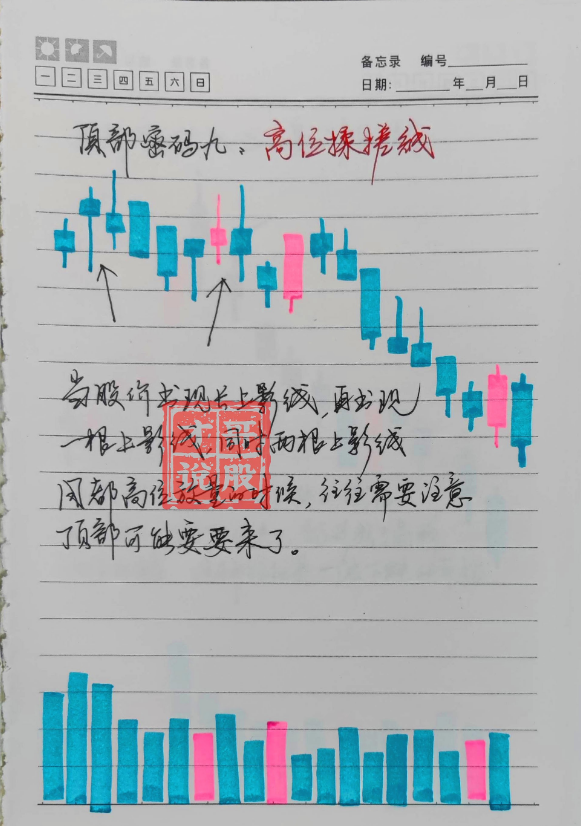 备忘录 编号
一 二 三 四 五 六 日
日期: 年 月 日
顶部密码九：高位揉搓线
当股价出现长上影线，再出现
一根上影线，同时两根上影线
周都高位放量的时候，往往需要注意
顶部可能要要来了。
证
说股